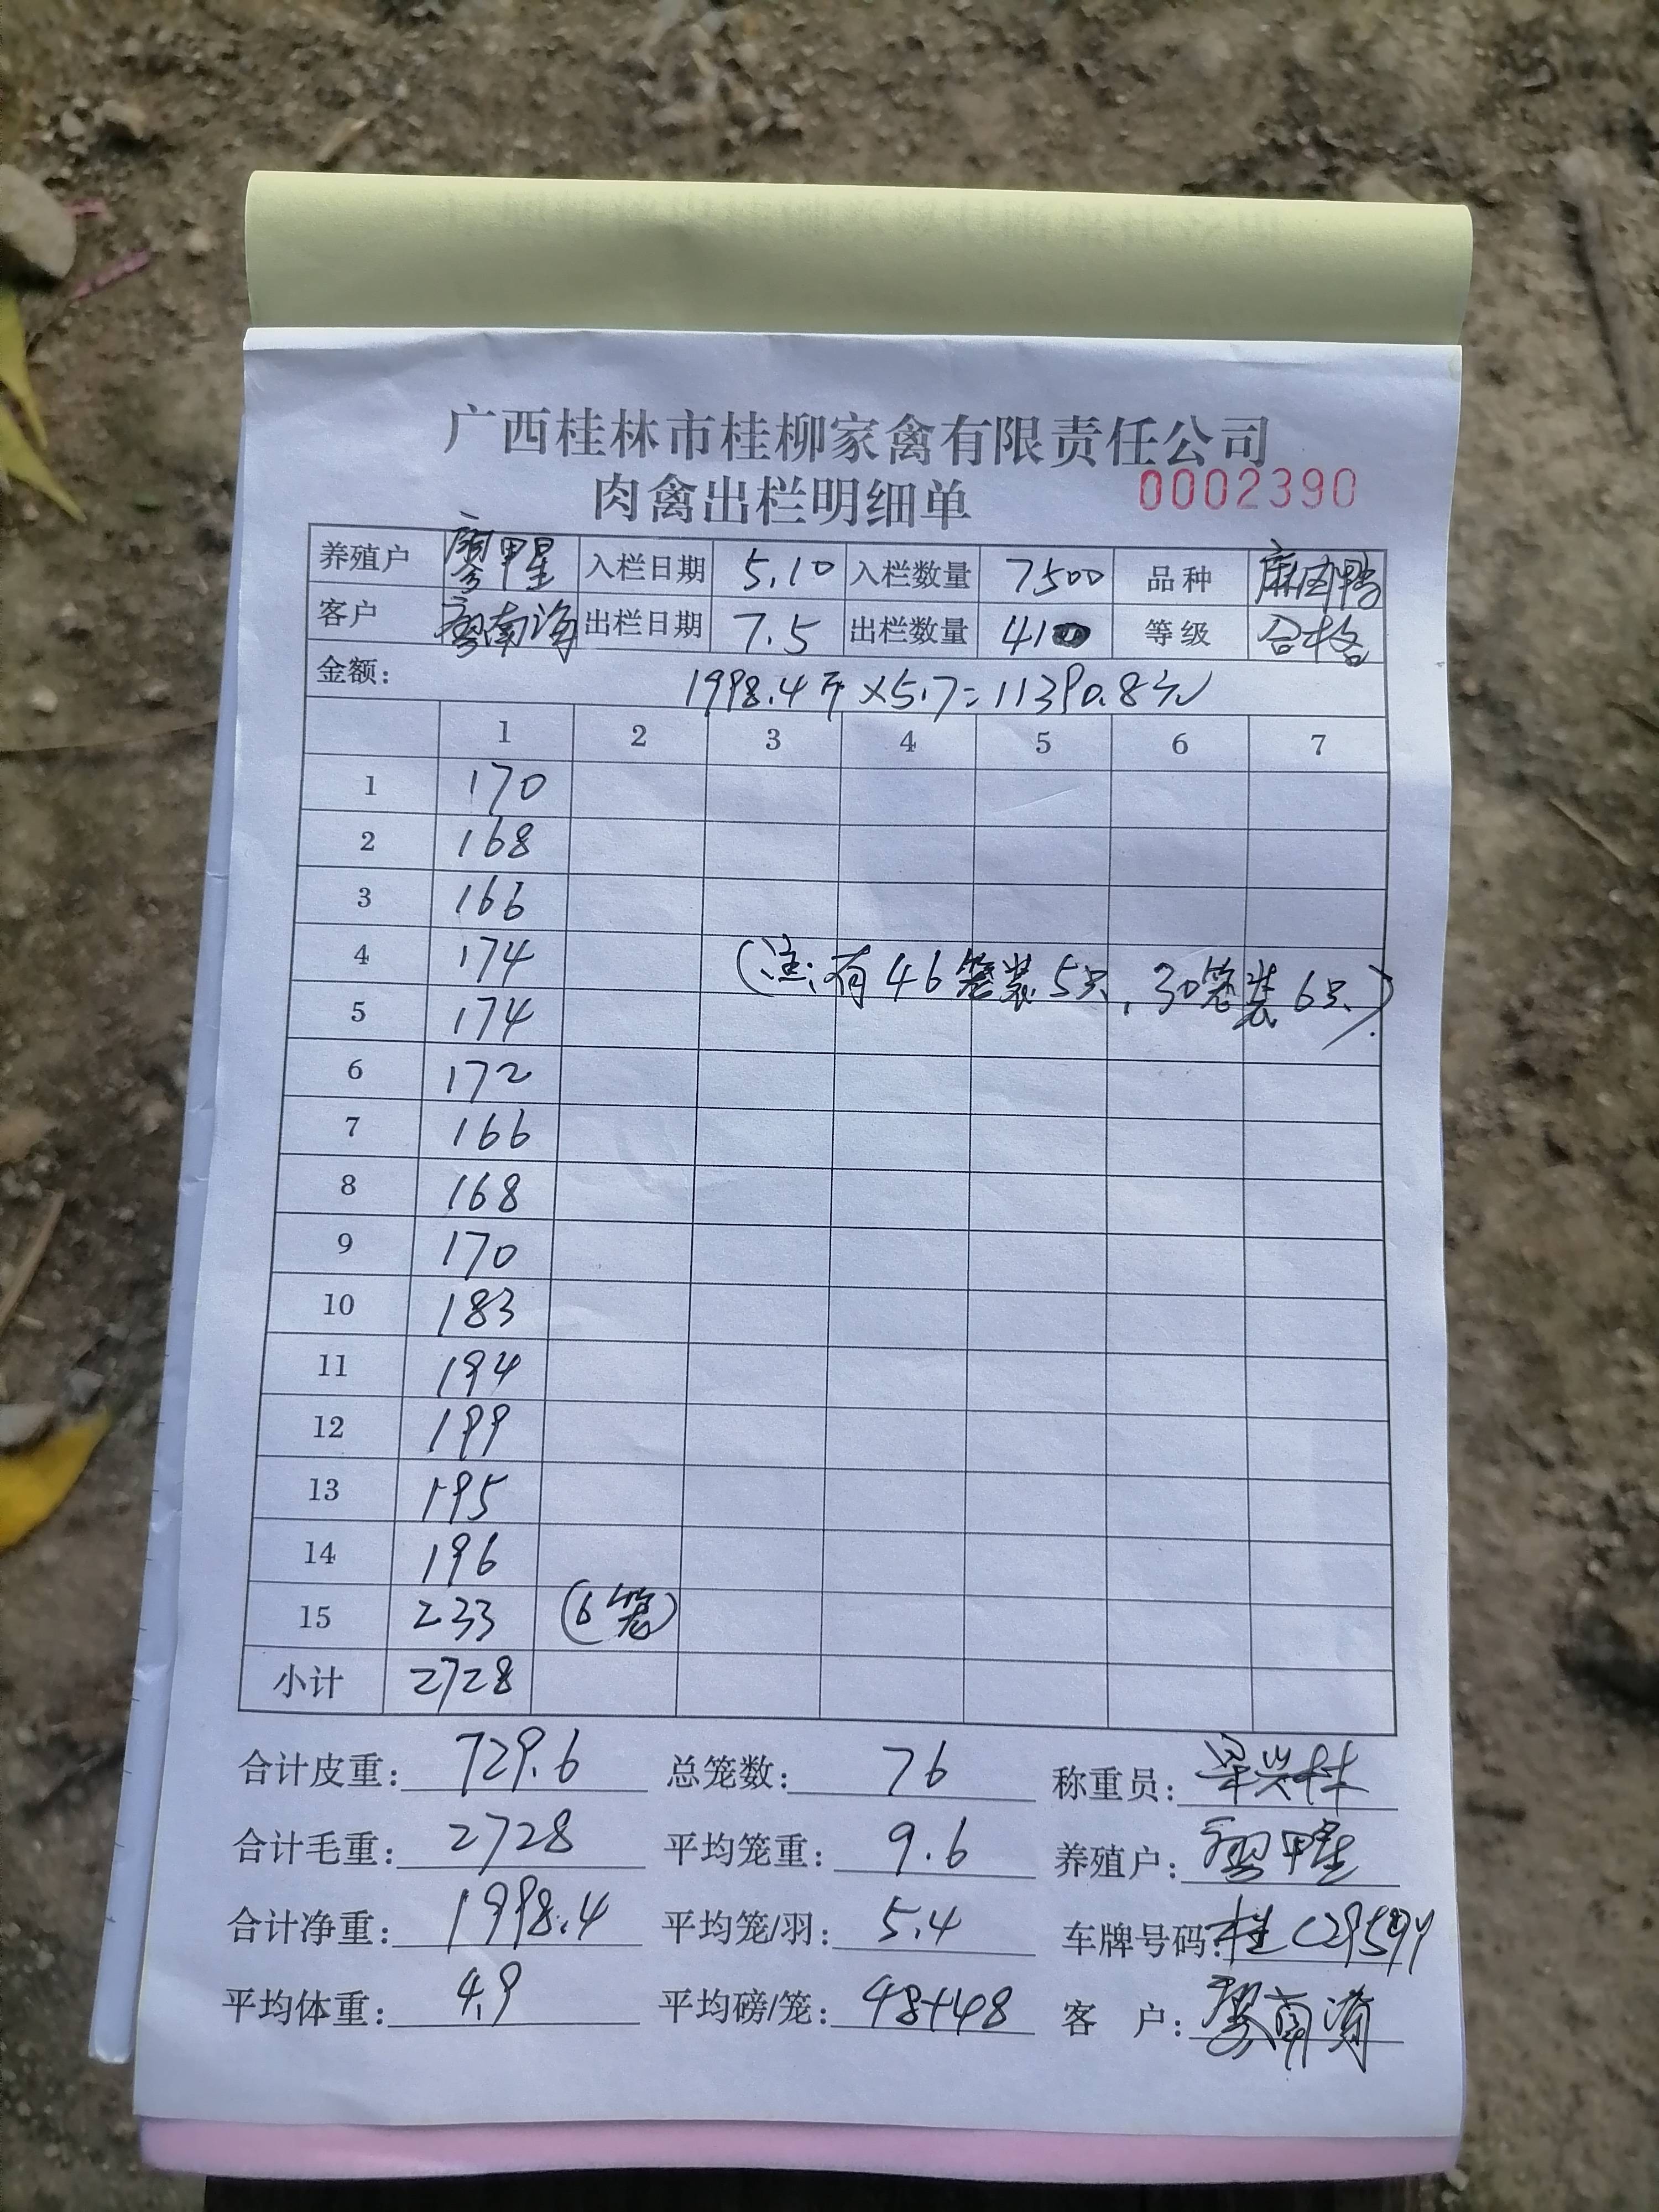 广西桂林市桂柳家禽有限责任公司
肉禽出栏明细单 0002390
养殖户 廖甲星 入栏日期 5.10 入栏数量 7500 品种 麻肉鸭
客户 廖南海 出栏日期 7.5 出栏数量 410 等级 合格
金额: 1998.4斤×5.7=11390.8元
1 2 3 4 5 6 7
1 170
2 168
3 166
4 174 (注:有46笼装5只,30笼装6只)
5 174
6 172
7 166
8 168
9 170
10 183
11 194
12 199
13 195
14 196
15 233 (6笼)
小计 2728
合计皮重: 729.6 总笼数: 76 称重员:
合计毛重: 2728 平均笼重: 9.6 养殖户: 廖甲星
合计净重: 1998.4 平均笼/羽: 5.4 车牌号码: 桂C29599
平均体重: 4.9 平均磅/笼: 48+48 客 户: 廖南海